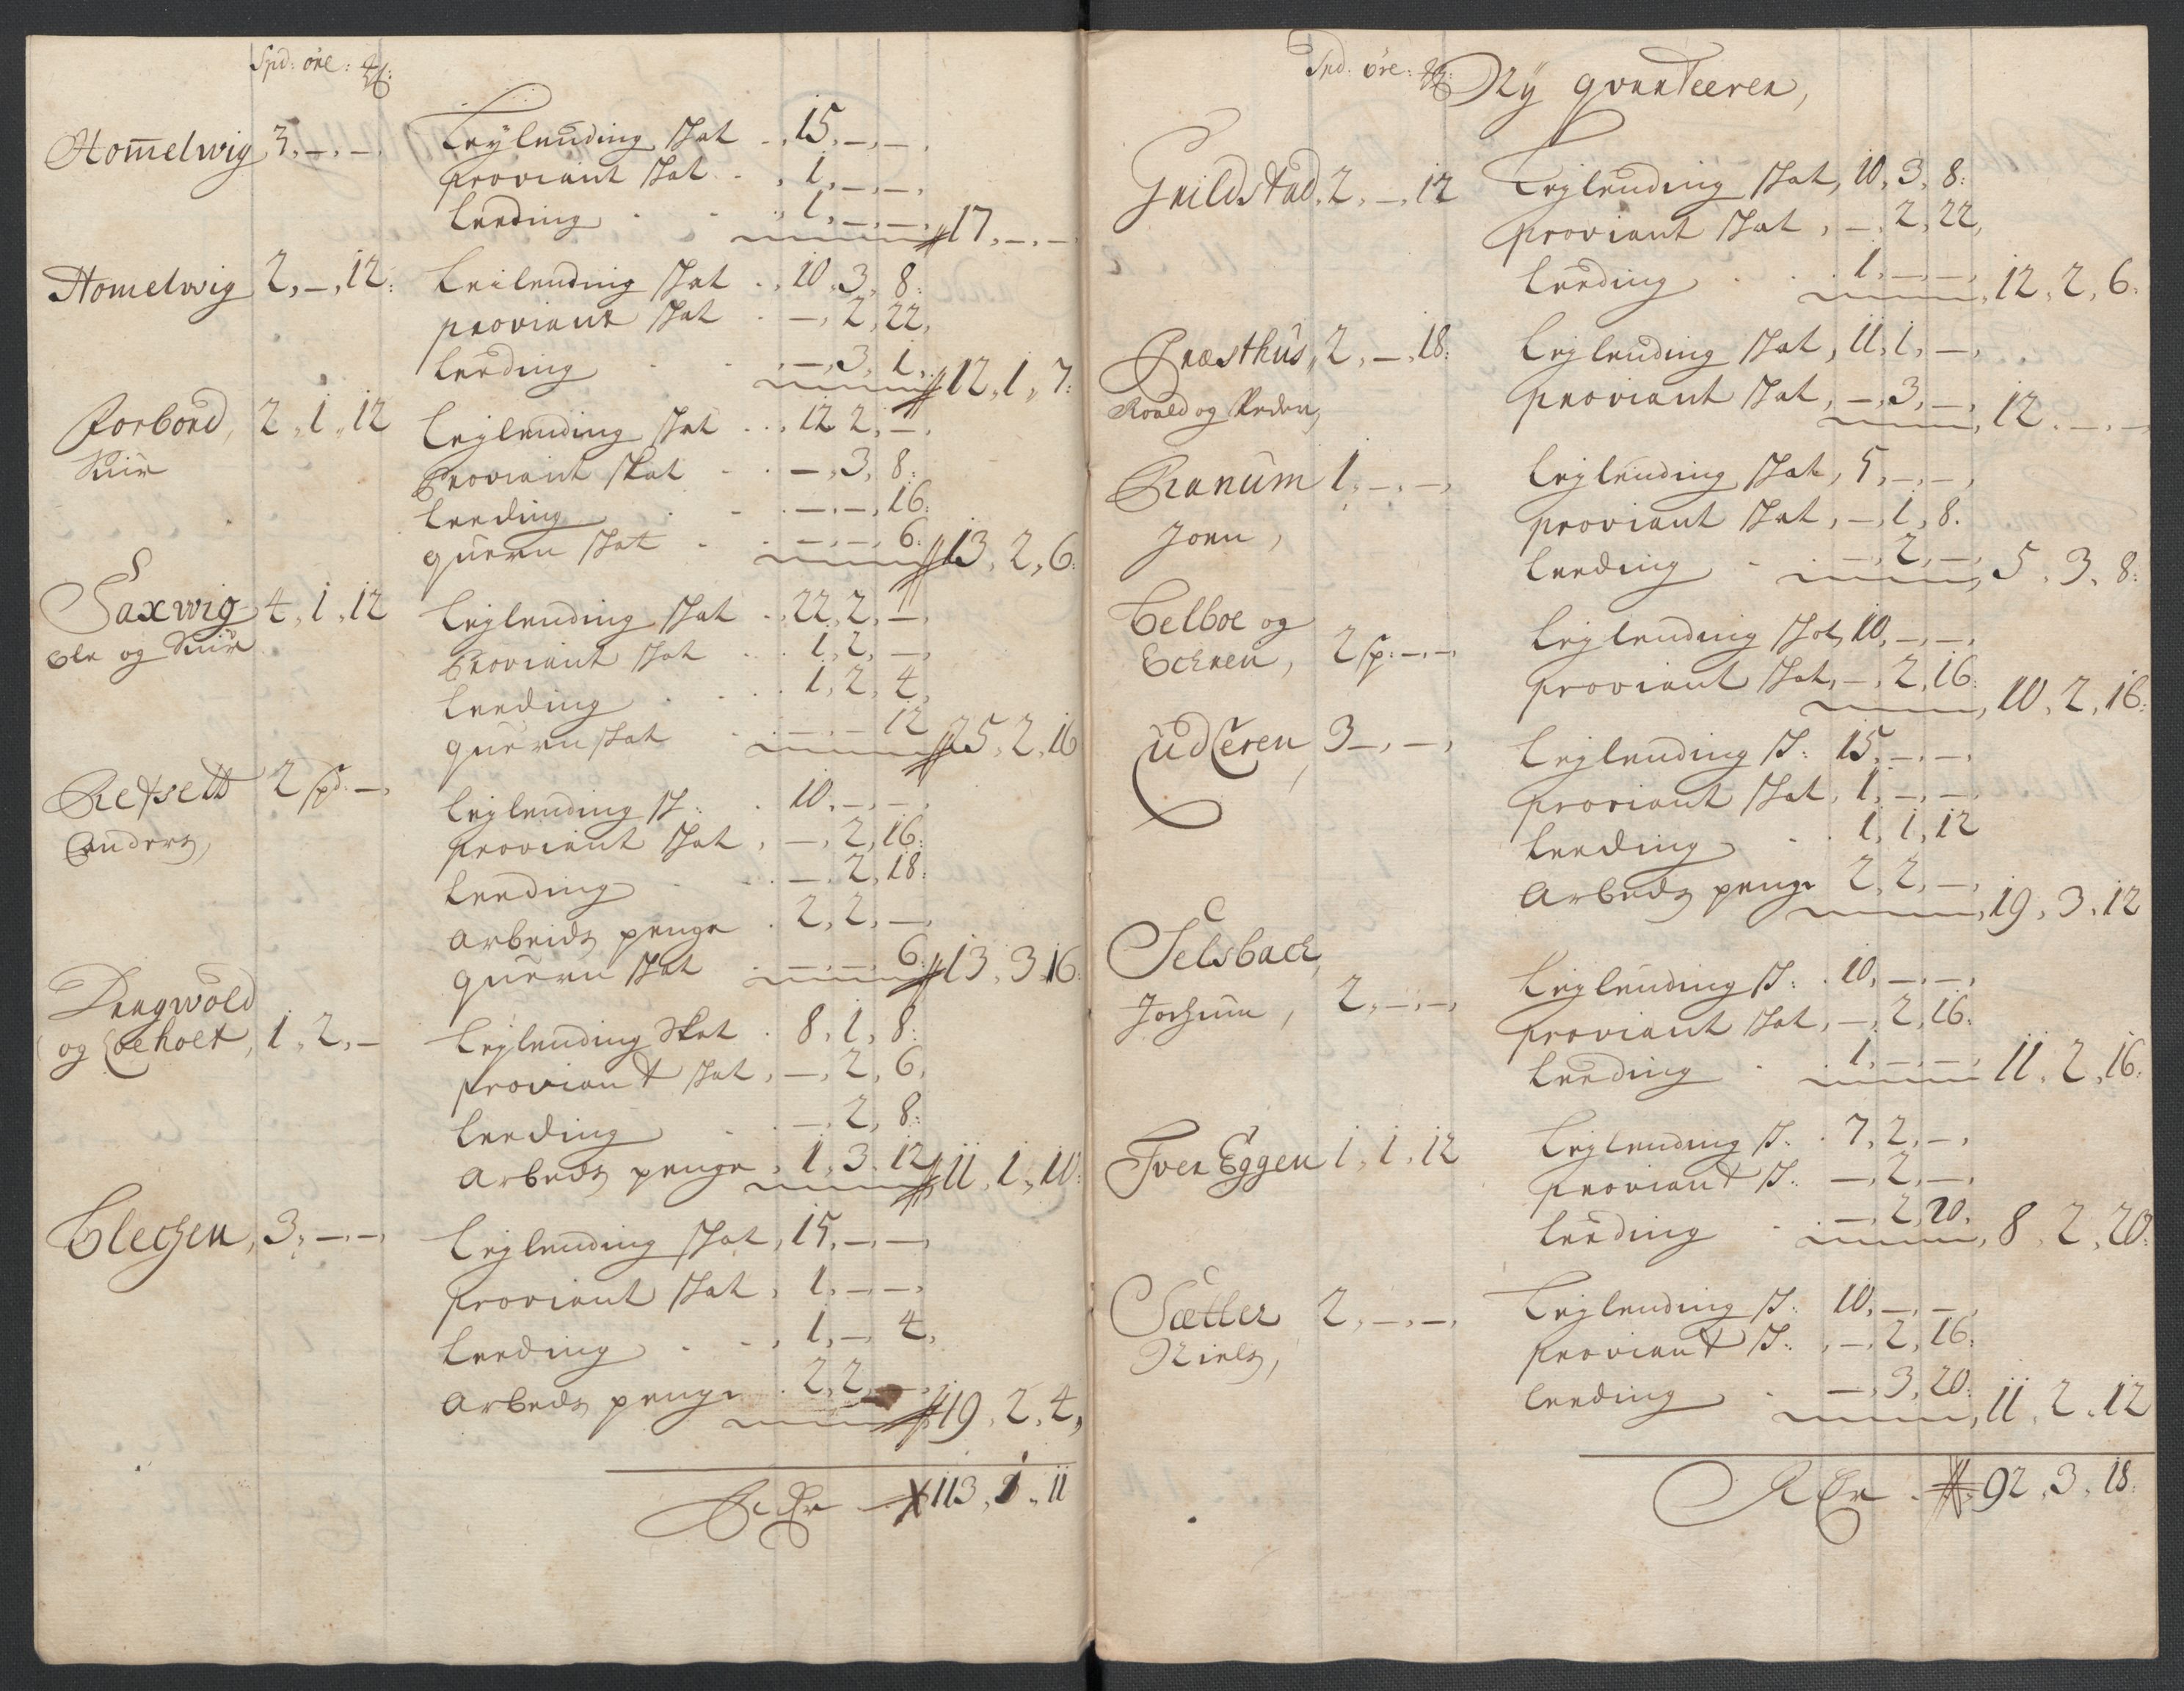 Spd: øre:
Hommelwig 3,—,— Leylending skat . 15,—,—
proviant skat . 1,—,—
Leeding . . 1,—,— 17,—,—
Homelwig 2,—,12: Leilending skat . 10,3,8:
proviant skat . —,2,22,
Leeding . . —,3,1, 12,1,7:
Forbord, 2,1,12 Leylending skat . 12,2,—
Proviant skat . —,3,8:
Leeding . —,—,16:
quern skat . —,—,6: 13,2,6:
Saxwig 4,1,12 Leylending skat . 22,2,—
Ole og
Proviant skat . 1,2,—
Leeding . 1,2,4,
quern skat . —,—,12 25,2,16
2 spd:—, Leylending sk: . 10,—,—
Anders,
proviant skat , —,2,16:
Leeding . —,2,18:
Arbeids penge . 2,2,—
quern skat . —,—,6: 13,3,16:
Dragwold
og 1,2,— Leylending Skat . 8,1,8:
proviant skat , —,2,6,
Leeding . —,2,8:
Arbeds penge , 1,3,12 11,1,10:
3,—,— Leylending skat , 15,—,—
proviant skat , 1,—,—
Leeding . . 1,—,4,
Arbeds penge . 2,2,— 19,2,4,
113,1,11
Spd: øre: Ny qvarteeren,
2,—,12 Leylending skat, 10,3,8:
proviant skat , —,2,22,
Leeding . . 1,—,— 12,2,6:
Præsthus, 2,—,18: Leylending skat, 11,1,—,
Roald og Peder,
proviant skat, —,3,—, 12,—,—
Ranum 1,—,—, Leylending skat, 5,—,—,
proviant skat, —,1,8.
Joen,
Leeding . —,2,—, 5,3,8:
Belboe og
2 sp:—,—, Leylending skat, 10,—,—,
proviant skat, —,2,16: 10,2,16:
3—,—, Leylending s: 15,—,—,
proviant skat, 1,—,—
Leeding . . 1,1,12
Arbeds penge 2,2,—, 19,3,12
Selsback,
Jochum, 2,—,—, Leylending s: . 10,—,—,
proviant skat, —,2,16:
Leeding . 1,—,—, 11,2,16:
Iver Eggen 1,1,12 Leylending s: . 7,2,—,
proviant s: —,2,—,
Leeding . —,2,20, 8,2,20:
Sætter 2,—,—, Leylending s: 10,—,—,
Niels,
proviant s: , —,2,16:
Leeding . —,3,20: 11,2,12
92,3,18: